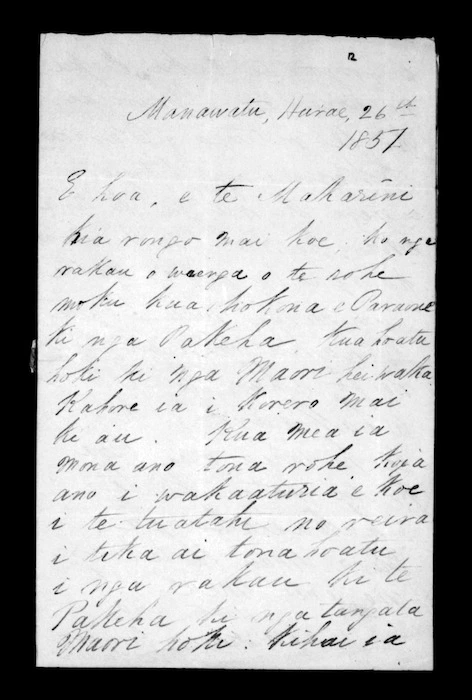 2
Manawatu, Hurae, 26th
1851
E hoa, e te Makarini
kia rongo mai koe, ko nga
rakau o waenga o te rohe
moku kua hokona e Paraone
ki nga Pakeha, Kua hoatu
hoki ki nga Maori hei waka.
Kahore ia i korero mai
ki au. Kua mea ia
mona ano tona rohe Koia
ano i wakaaturia e koe
i te tuatahi no reira
i tika ai tona hoatu
i nga rakau ki te
Pakeha ki nga tangata
Maori hoki. Kihai ia